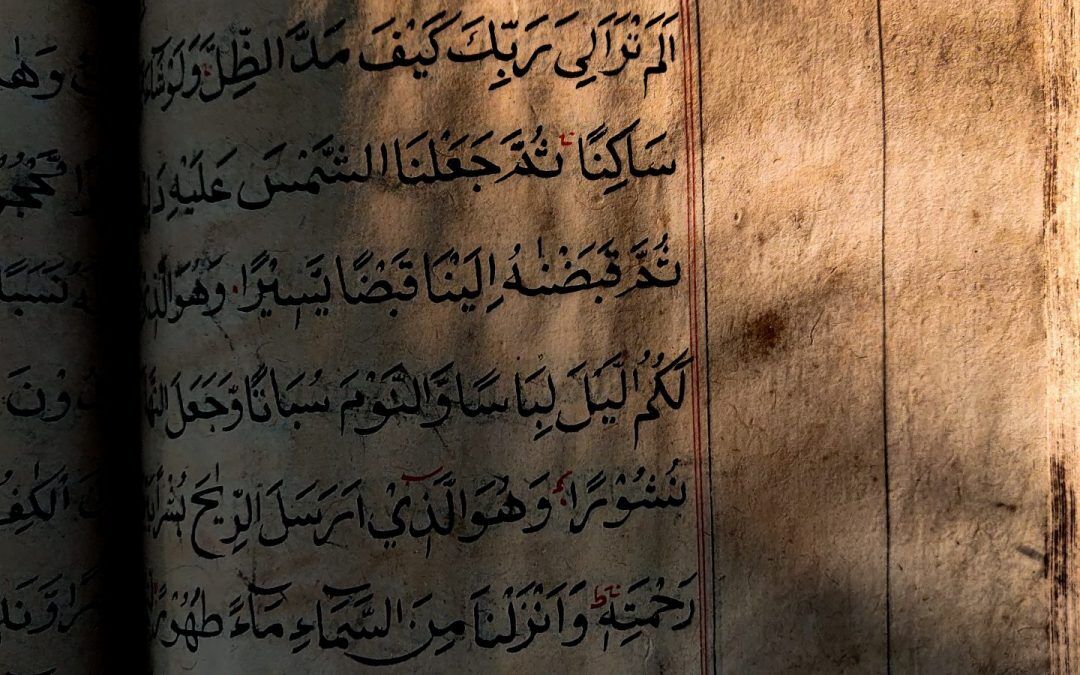 اَلَمْ تَرَ اِلَىٰ رَبِّكَ كَيْفَ مَدَّ الظِّلَّ وَلَوْ شَاءَ
سَاكِنًا ثُمَّ جَعَلْنَا الشَّمْسَ عَلَيْهِ
ثُمَّ قَبَضْنٰهُ اِلَيْنَا قَبْضًا يَّسِيْرًا وَهُوَ الَّذِي
لَكُمُ الَّيْلَ لِبَاسًا وَّالنَّوْمَ سُبَاتًا وَّجَعَلَ
نُشُوْرًا وَهُوَ الَّذِيْ اَرْسَلَ الرِّيٰحَ بُشْرًا
رَحْمَتِهٖ وَاَنْزَلْنَا مِنَ السَّمَاءِ مَاءً طَهُوْرًا